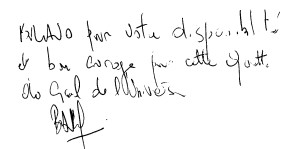 BRAVO pour votre disponibilité
et bon courage pour cette quête
du Graal de l'Univers